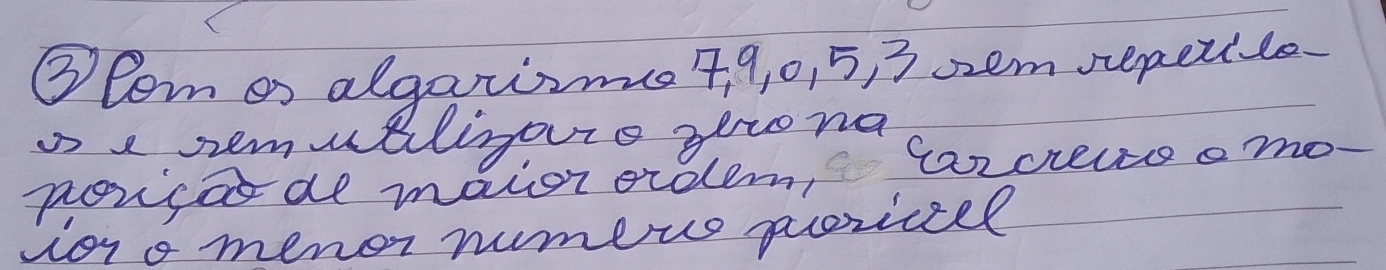 ③ Com os algarismo 7,9,0,5,3 sem repeti-lo-
os e sem utilizar o zero na
posição de maior ordem, escreva o ma-
ior o menor numero possivel